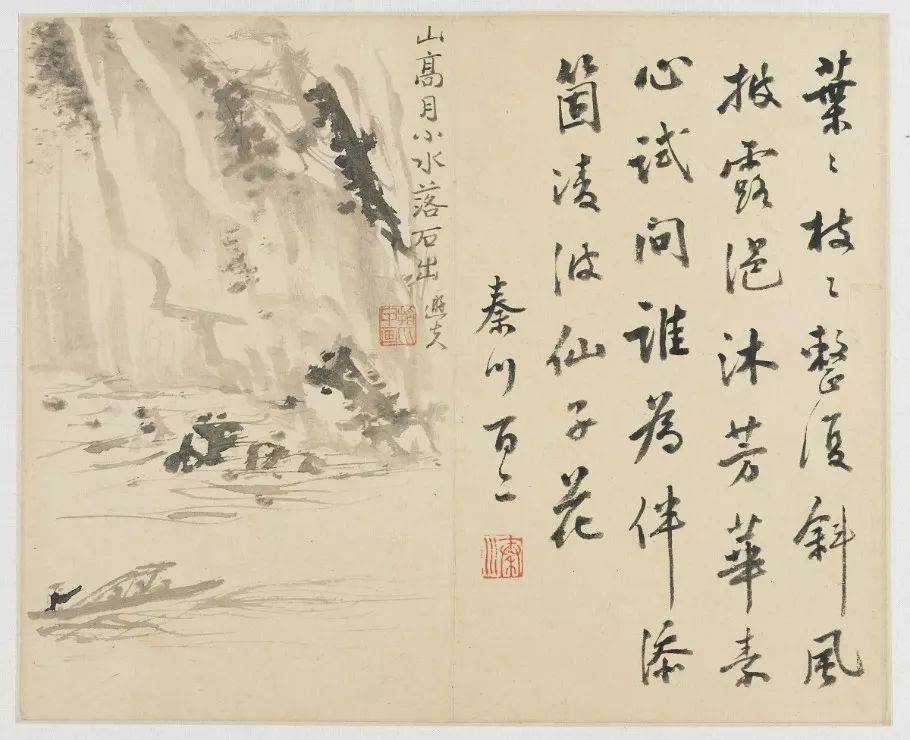 葉〻枝〻整復斜風
披露浥沐芳華素
心試問誰為伴添
箇凌波仙子花
秦川百二
秦川
山髙月小水落石出